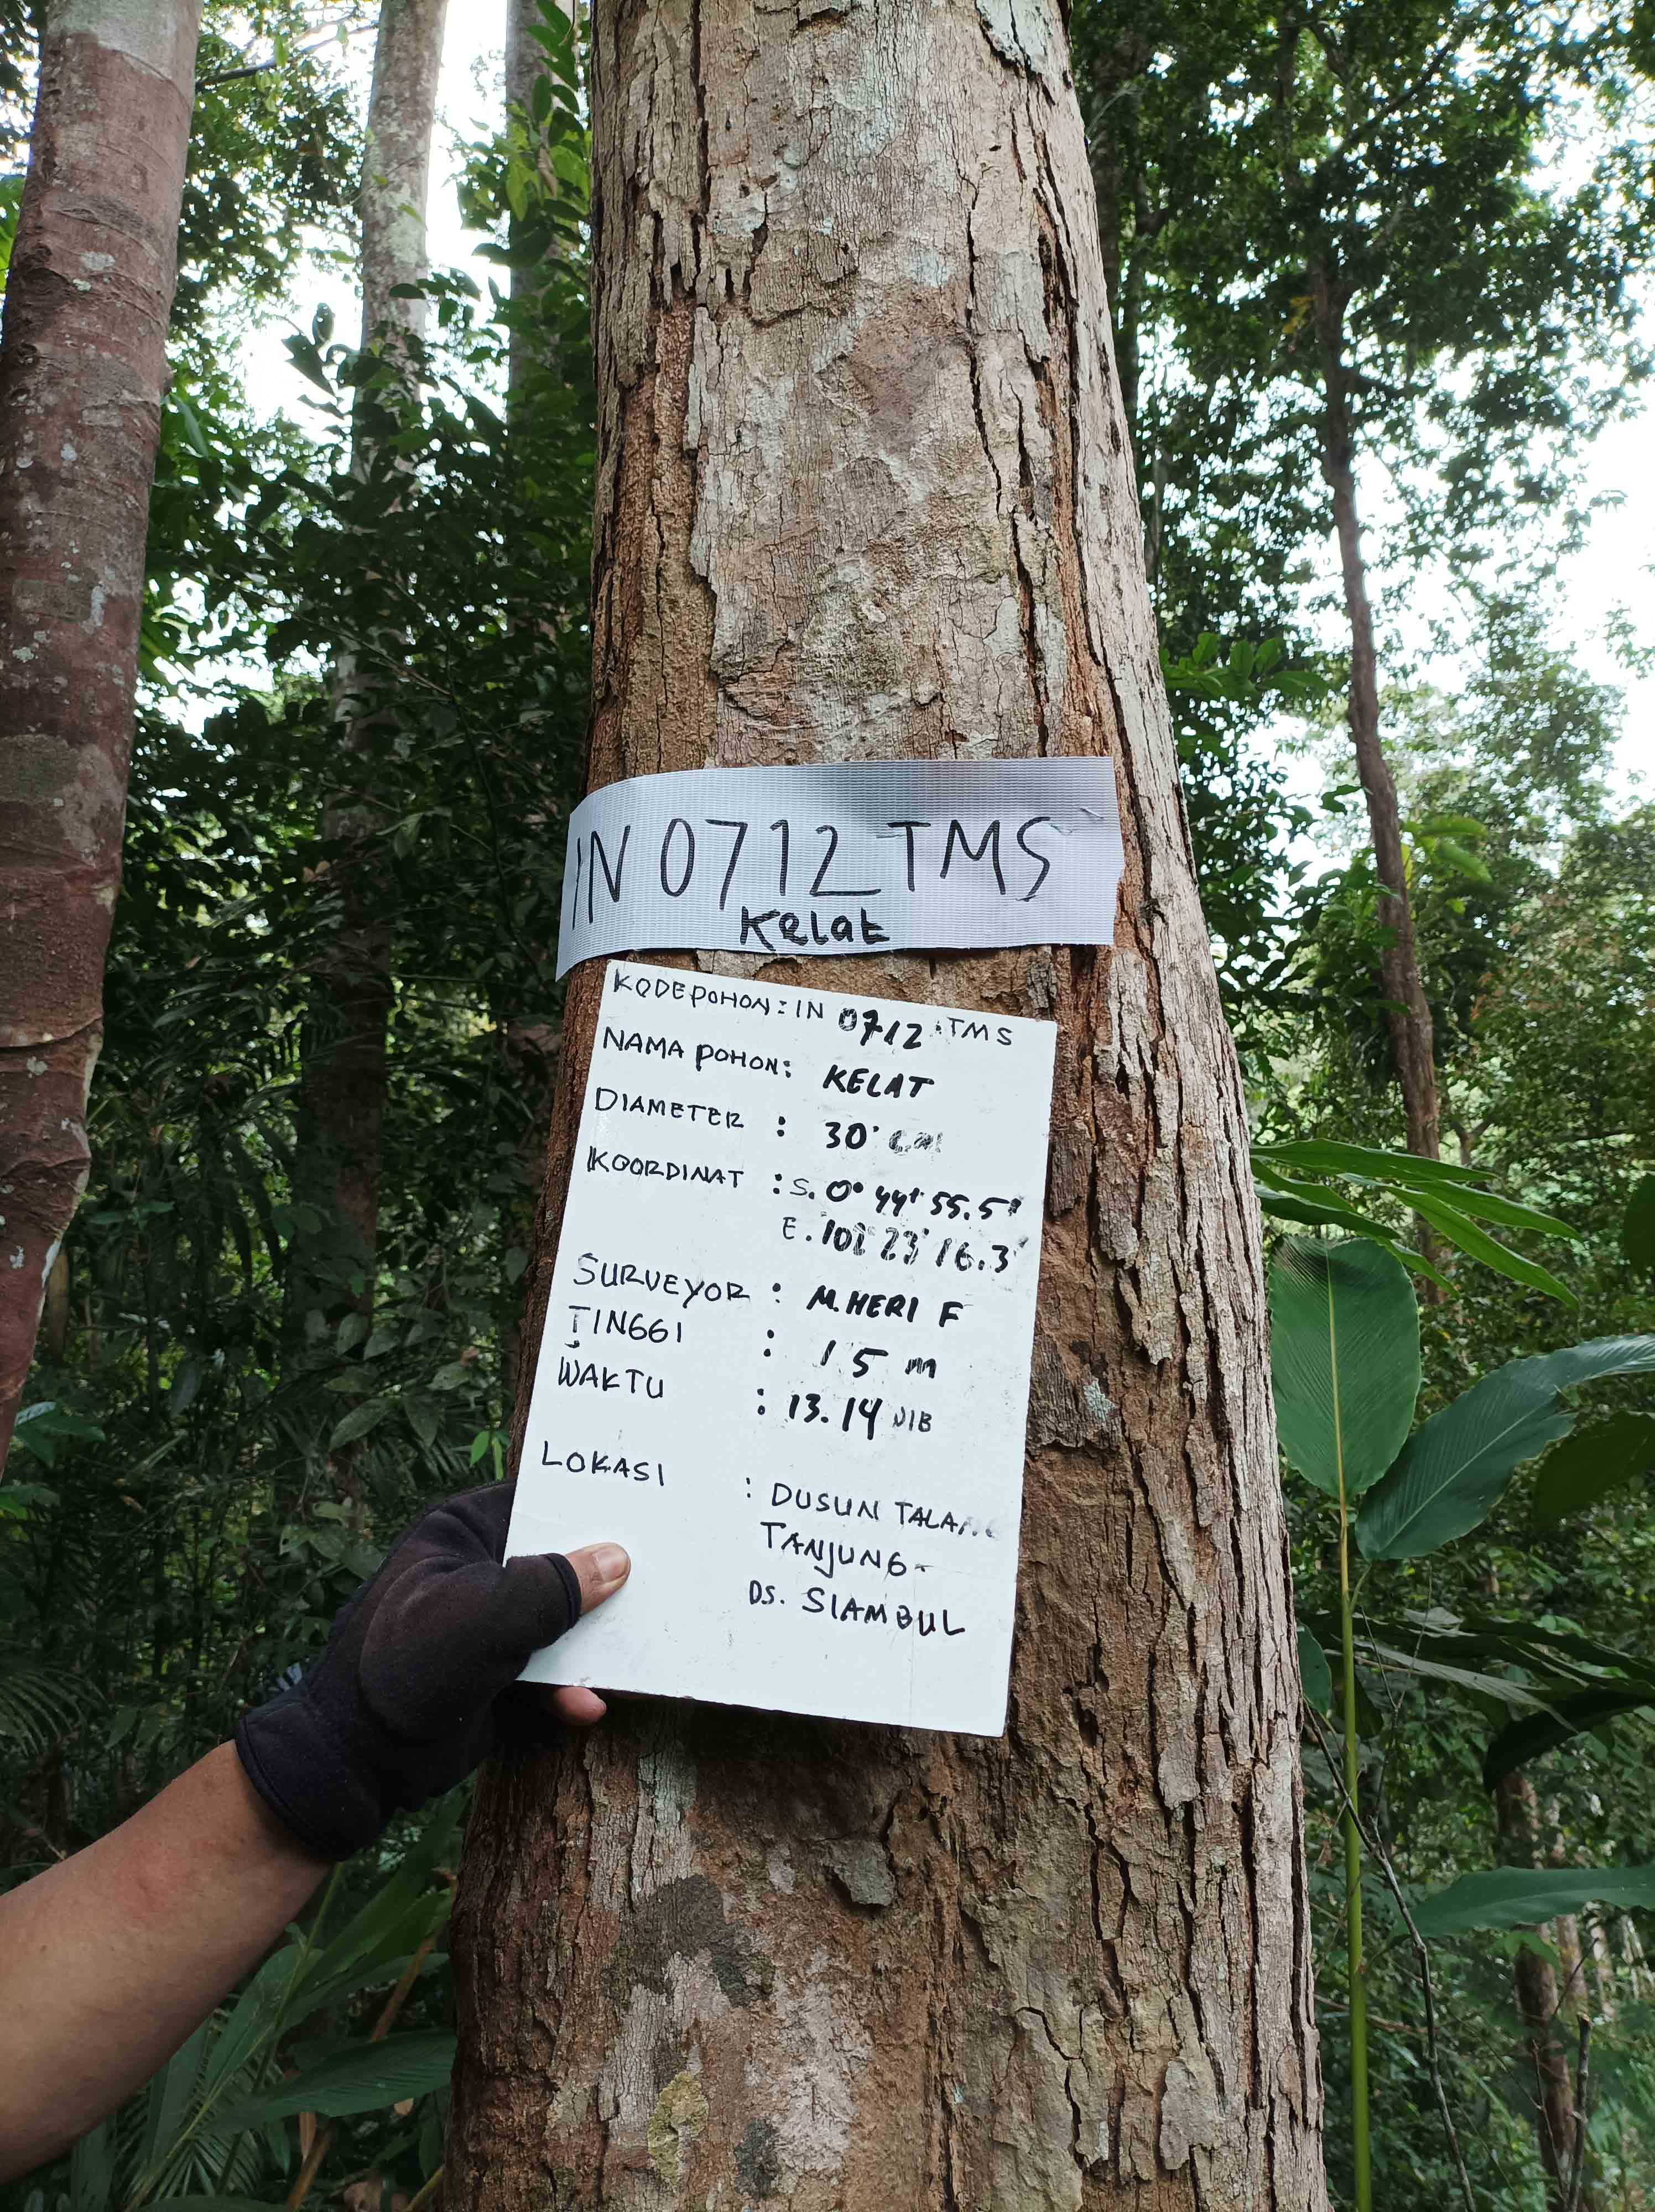 IN 0712 TMS
Kelat
KODE POHON : IN 0712 TMS
NAMA POHON : KELAT
DIAMETER : 30 cm
KOORDINAT : S. 0° 44' 55.5"
E. 23' 16.3"
SURVEYOR : M. HERI F
TINGGI : 15 m
WAKTU : 13.14 WIB
LOKASI : DUSUN TALANG
TANJUNG -
DS. SIAMBUL